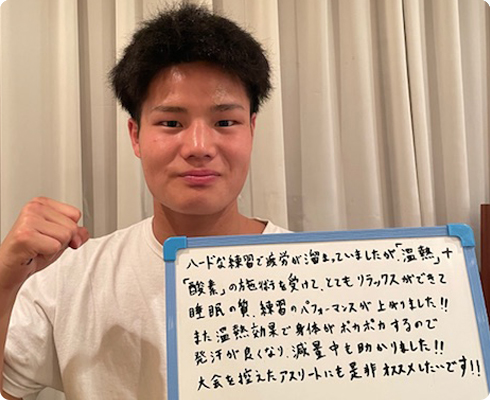 ハードな練習で疲労が溜まっていましたが、「温熱」+
「酸素」の施術を受けて、とてもリラックスができて
睡眠の質、練習のパフォーマンスが上がりました!!
また温熱効果で身体がポカポカするので
発汗が良くなり、減量中も助かりました!!
大会を控えたアスリートにも是非オススメしたいです!!